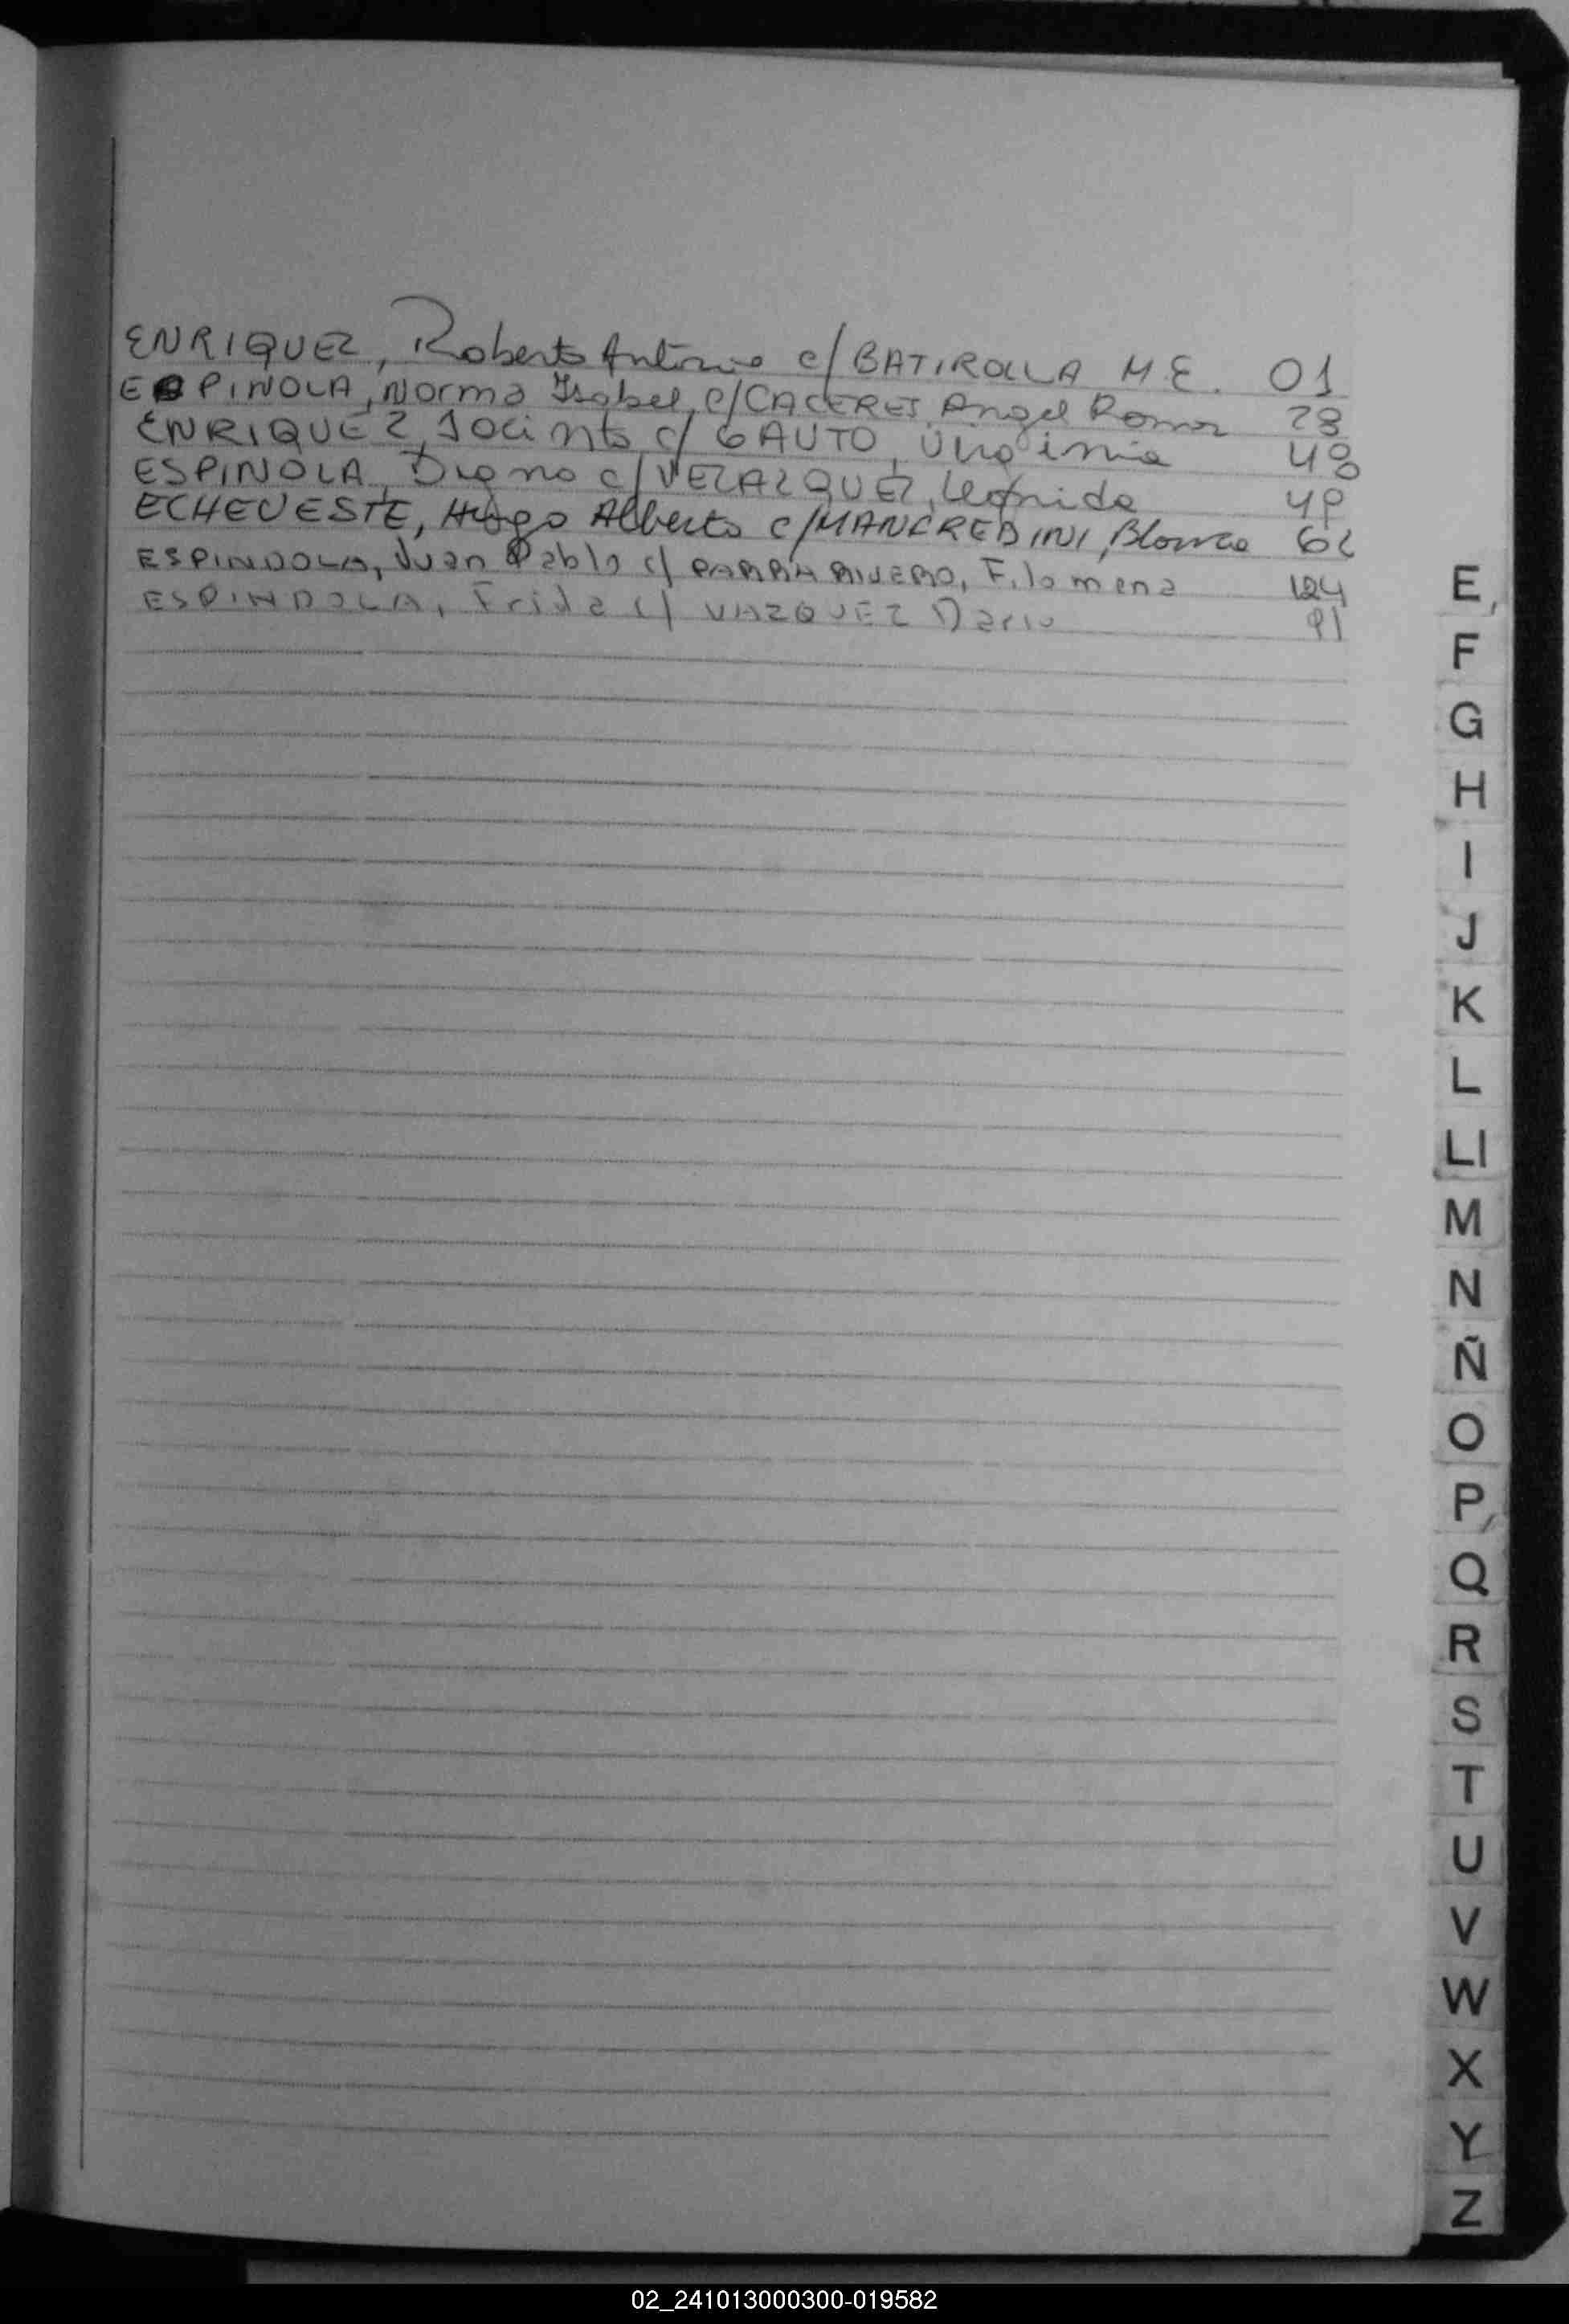 ENRIQUEZ, Roberto Antonio c/ BATIROLLA M.E. 01
ESPINOLA, Norma Isabel c/ CACERES Angel Ramon 28
ENRIQUEZ, Jacinto c/ GAUTO, Virginia 48
ESPINOLA, Digno c/ VELAZQUEZ, Leonida
ECHEVESTE, Hugo Alberto c/ MANFREDINI, Blanca
ESPINDOLA, Juan Pablo c/ PARRA RIVERO, Filomena 124
ESPINDOLA, Frida c/ VAZQUEZ Dario 91
E
F
G
H
I
J
K
L
Ll
M
N
Ñ
O
P
Q
R
S
T
U
V
W
X
Y
Z
02_241013000300-019582